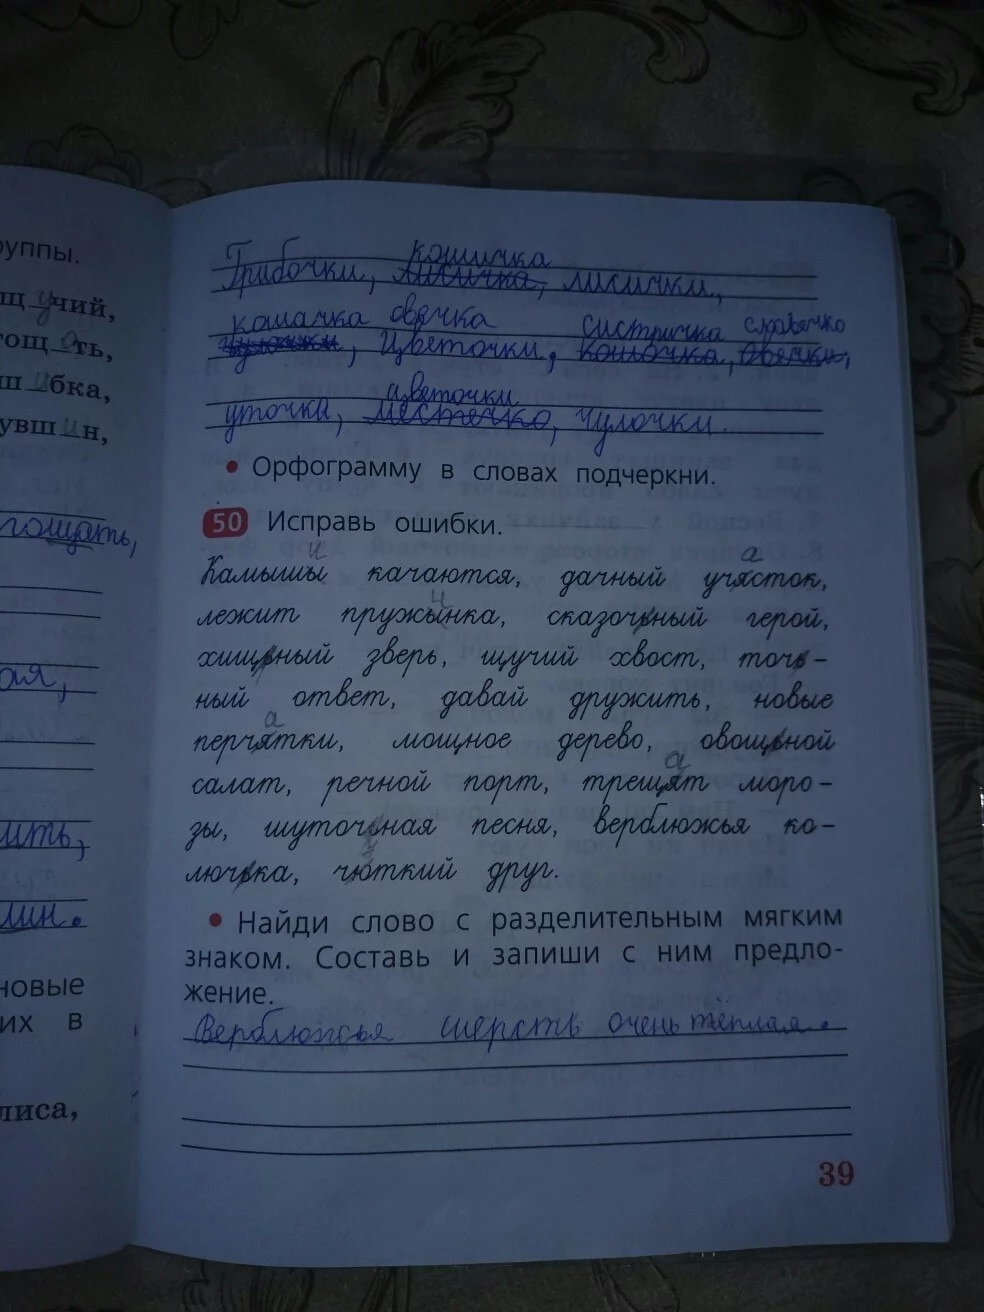 руппы.
щ учий,
гощ а ть,
ш и бка,
увш и н,
гощать,
ая,
ить,
лин.
новые
их в
лиса,
кошичка
Грибочки, лисичка, лисички,
кошачка овечка систричка
, Цветочки, кошочка, овечки,
цветочки
уточка, местечко, чулочки.
• Орфограмму в словах подчеркни.
50 Исправь ошибки.
и а
Камышы качаются, дачный учясток,
и
лежит пружынка, сказочьный герой,
хищьный зверь, щучий хвост, точь-
ный ответ, давай дружить, новые
а
перчятки, мощное дерево, овощьной
а
салат, речной порт, трещят моро-
зы, шуточьная песня, верблюжья ко-
лючька, чюткий друг.
• Найди слово с разделительным мягким
знаком. Составь и запиши с ним предло-
жение.
Верблюжья шерсть очень тёплая.
39